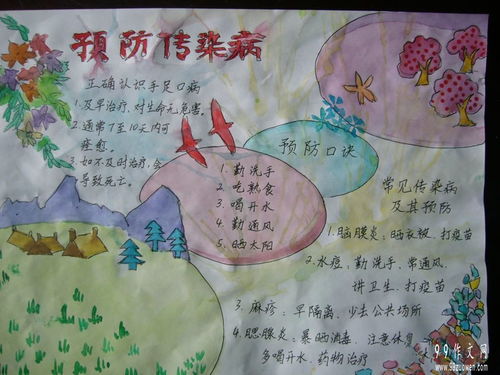 预防传染病
正确认识手足口病
1.及早治疗,对生命无危害。
2.通常7至10天内可
痊愈。
3.如不及时治疗,会
导致死亡。
预防口诀
1.勤洗手
2.吃熟食
3.喝开水
4.勤通风
5.晒太阳
常见传染病
及其预防
1.脑膜炎:晒衣被、打疫苗
2.水痘、勤洗手、常通风、
讲卫生、打疫苗
3.麻疹:早隔离、少去公共场所
4.腮腺炎:暴晒消毒、注意休息
多喝开水、药物治疗
99作文网
www.99zuowen.com